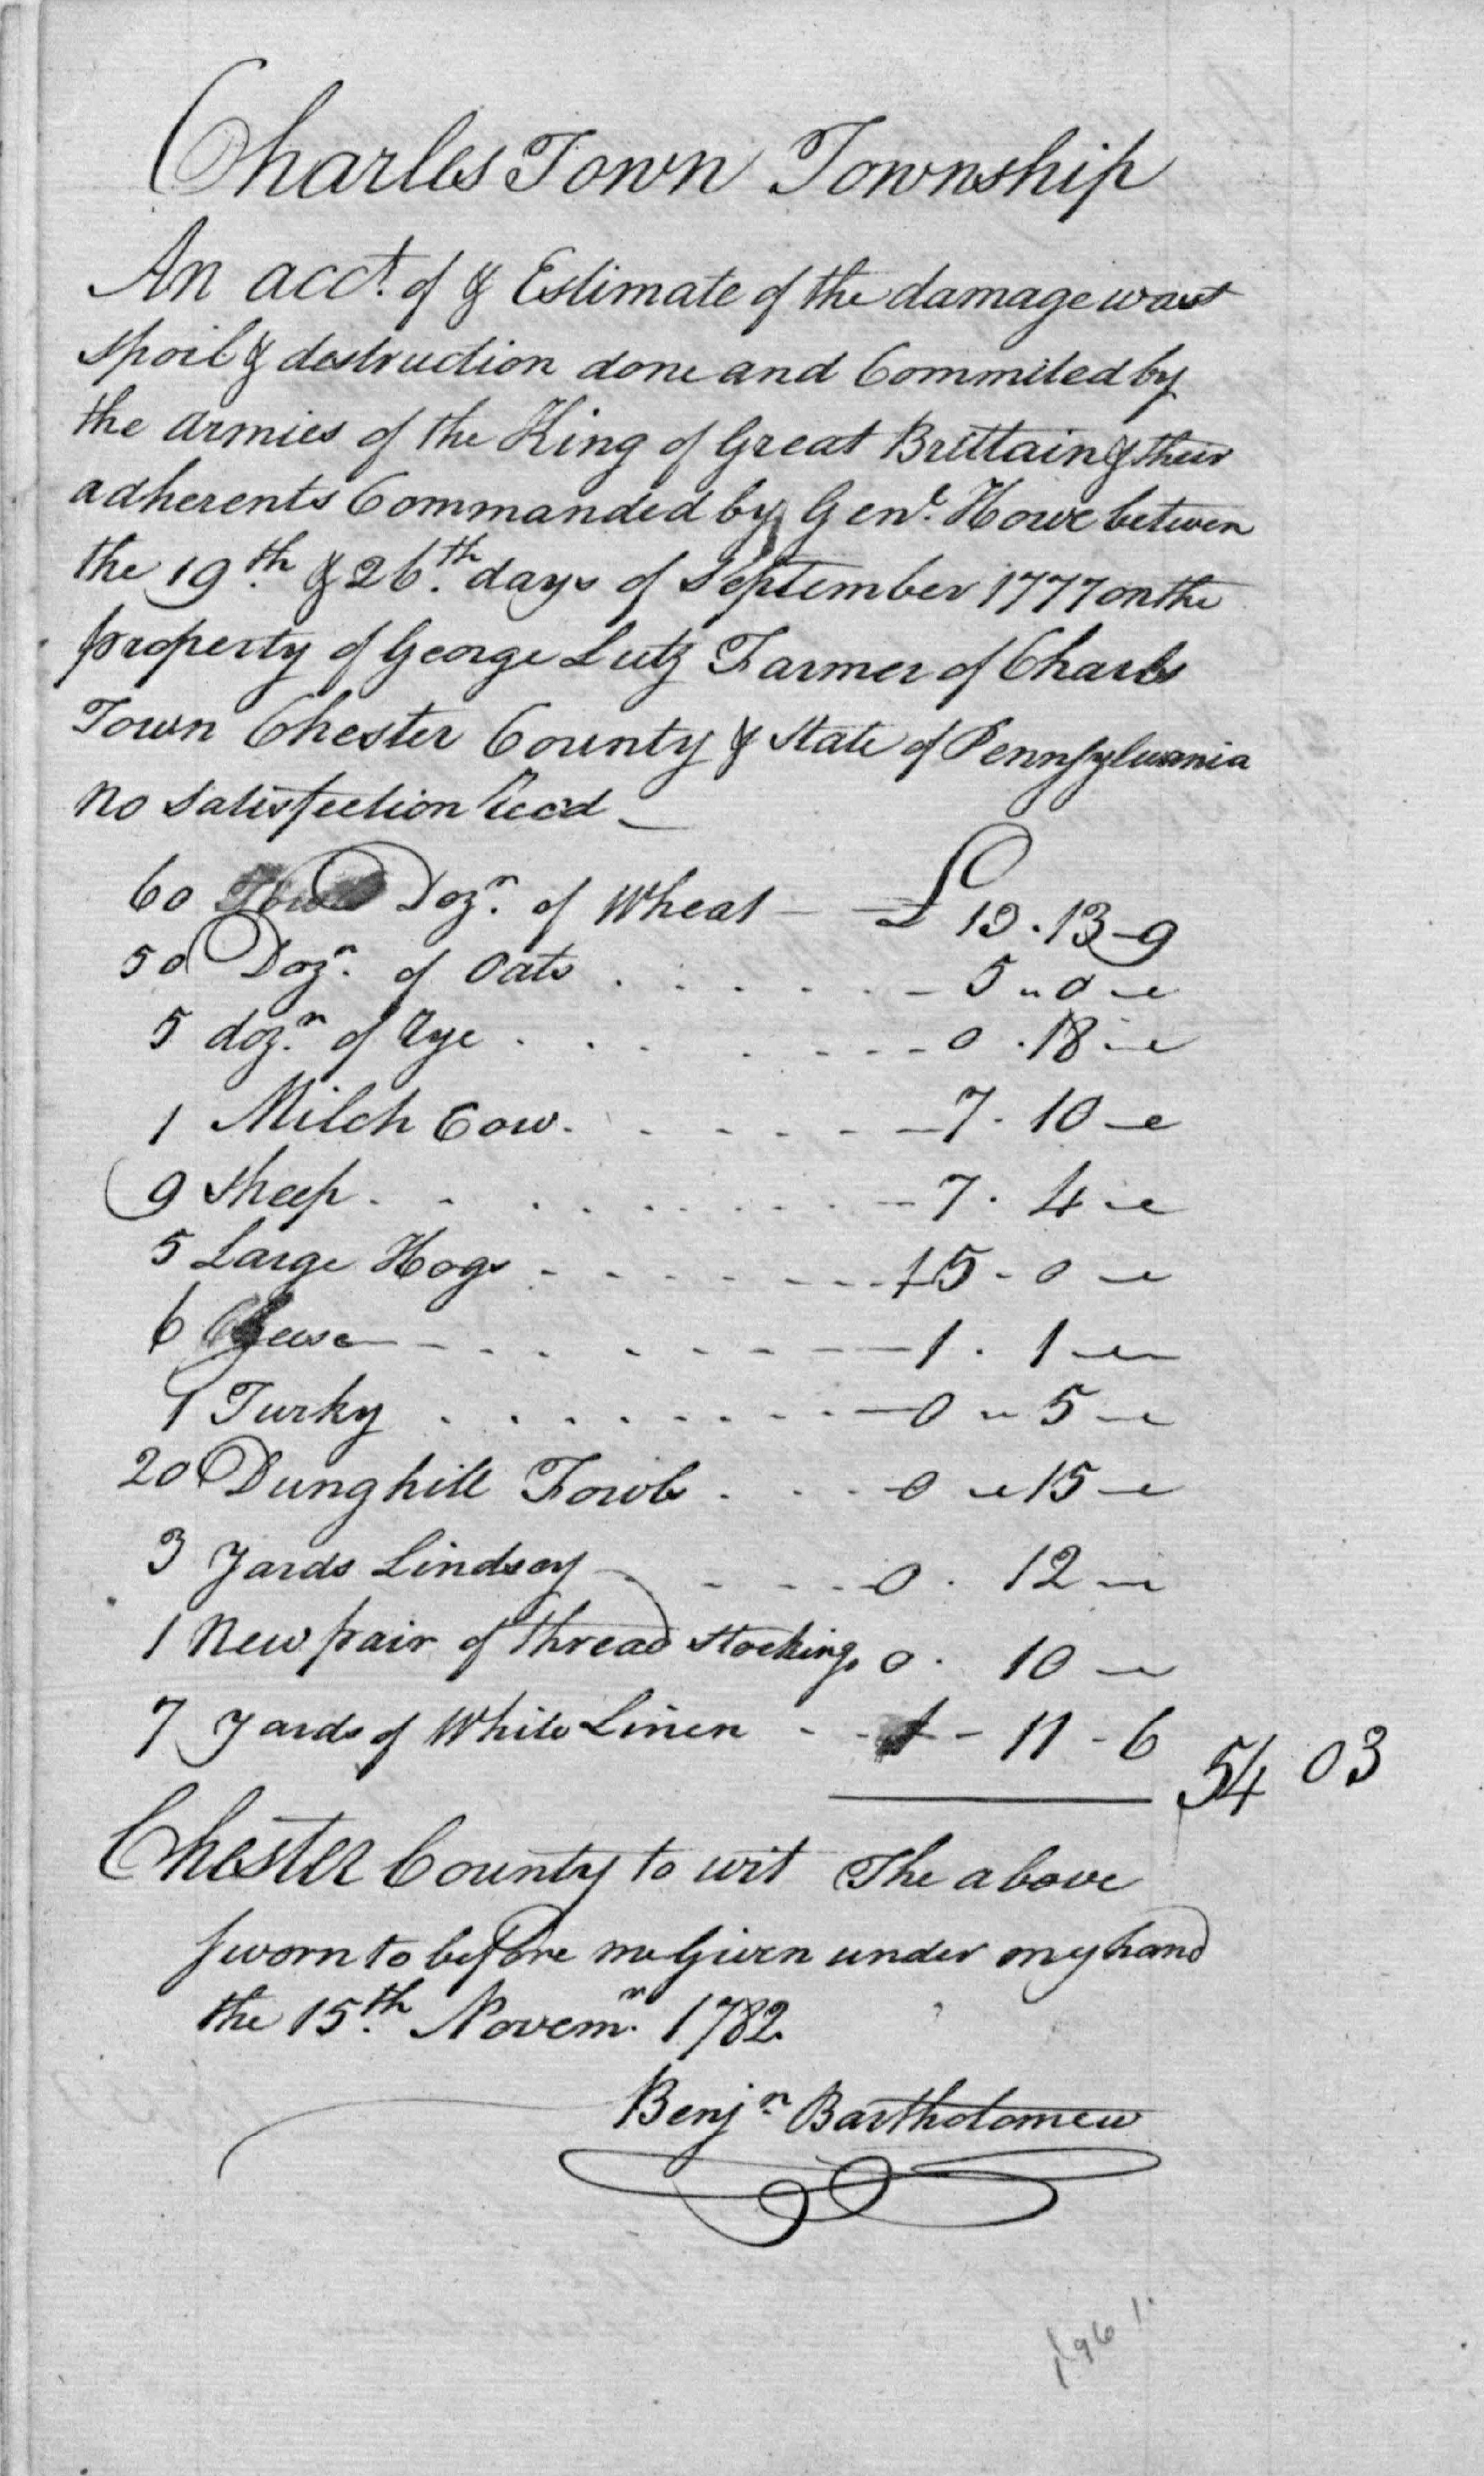 Charles Town Township
An acct. of & Estimate of the damage wast
spoil & destruction done and Commited by
the armies of the King of Great Brittain & their
adherents Commanded by Genl. Howe betwen
the 19th. & 26th. days of September 1777 on the
property of George Lutz Farmer of Charls
Town Chester County & State of Pennsylvania
No Satisfection Recd _
60 Dozn. of Wheat — £ 13 . 13 - 9
50 Dozn. of Oats . . . . . - 5 " 0 -
5 dozn. of Rye . . . . . . - 0 . 18 -
1 Milch Cow . . . . - - 7 . 10 -
9 Sheep . . . . . . . . - 7 . 4 -
5 Large Hogs - - - - - - - 15 - 0 -
6 Geese - - - - - - - 1 . 1 -
1 Turky . . . . . . . - 0 " 5 -
20 Dunghill Fowls . . . - 0 " 15 -
3 Yards Lindsey - - - - - 0 . 12 -
1 New pair of thread Stockings 0 . 10 -
7 Yards of White Linen - - 1 - 11 - 6
54 03
Chester County to wit The above
sworn to before me Given under my hand
the 15th. Novemr. 1782
Benjn. Bartholomew